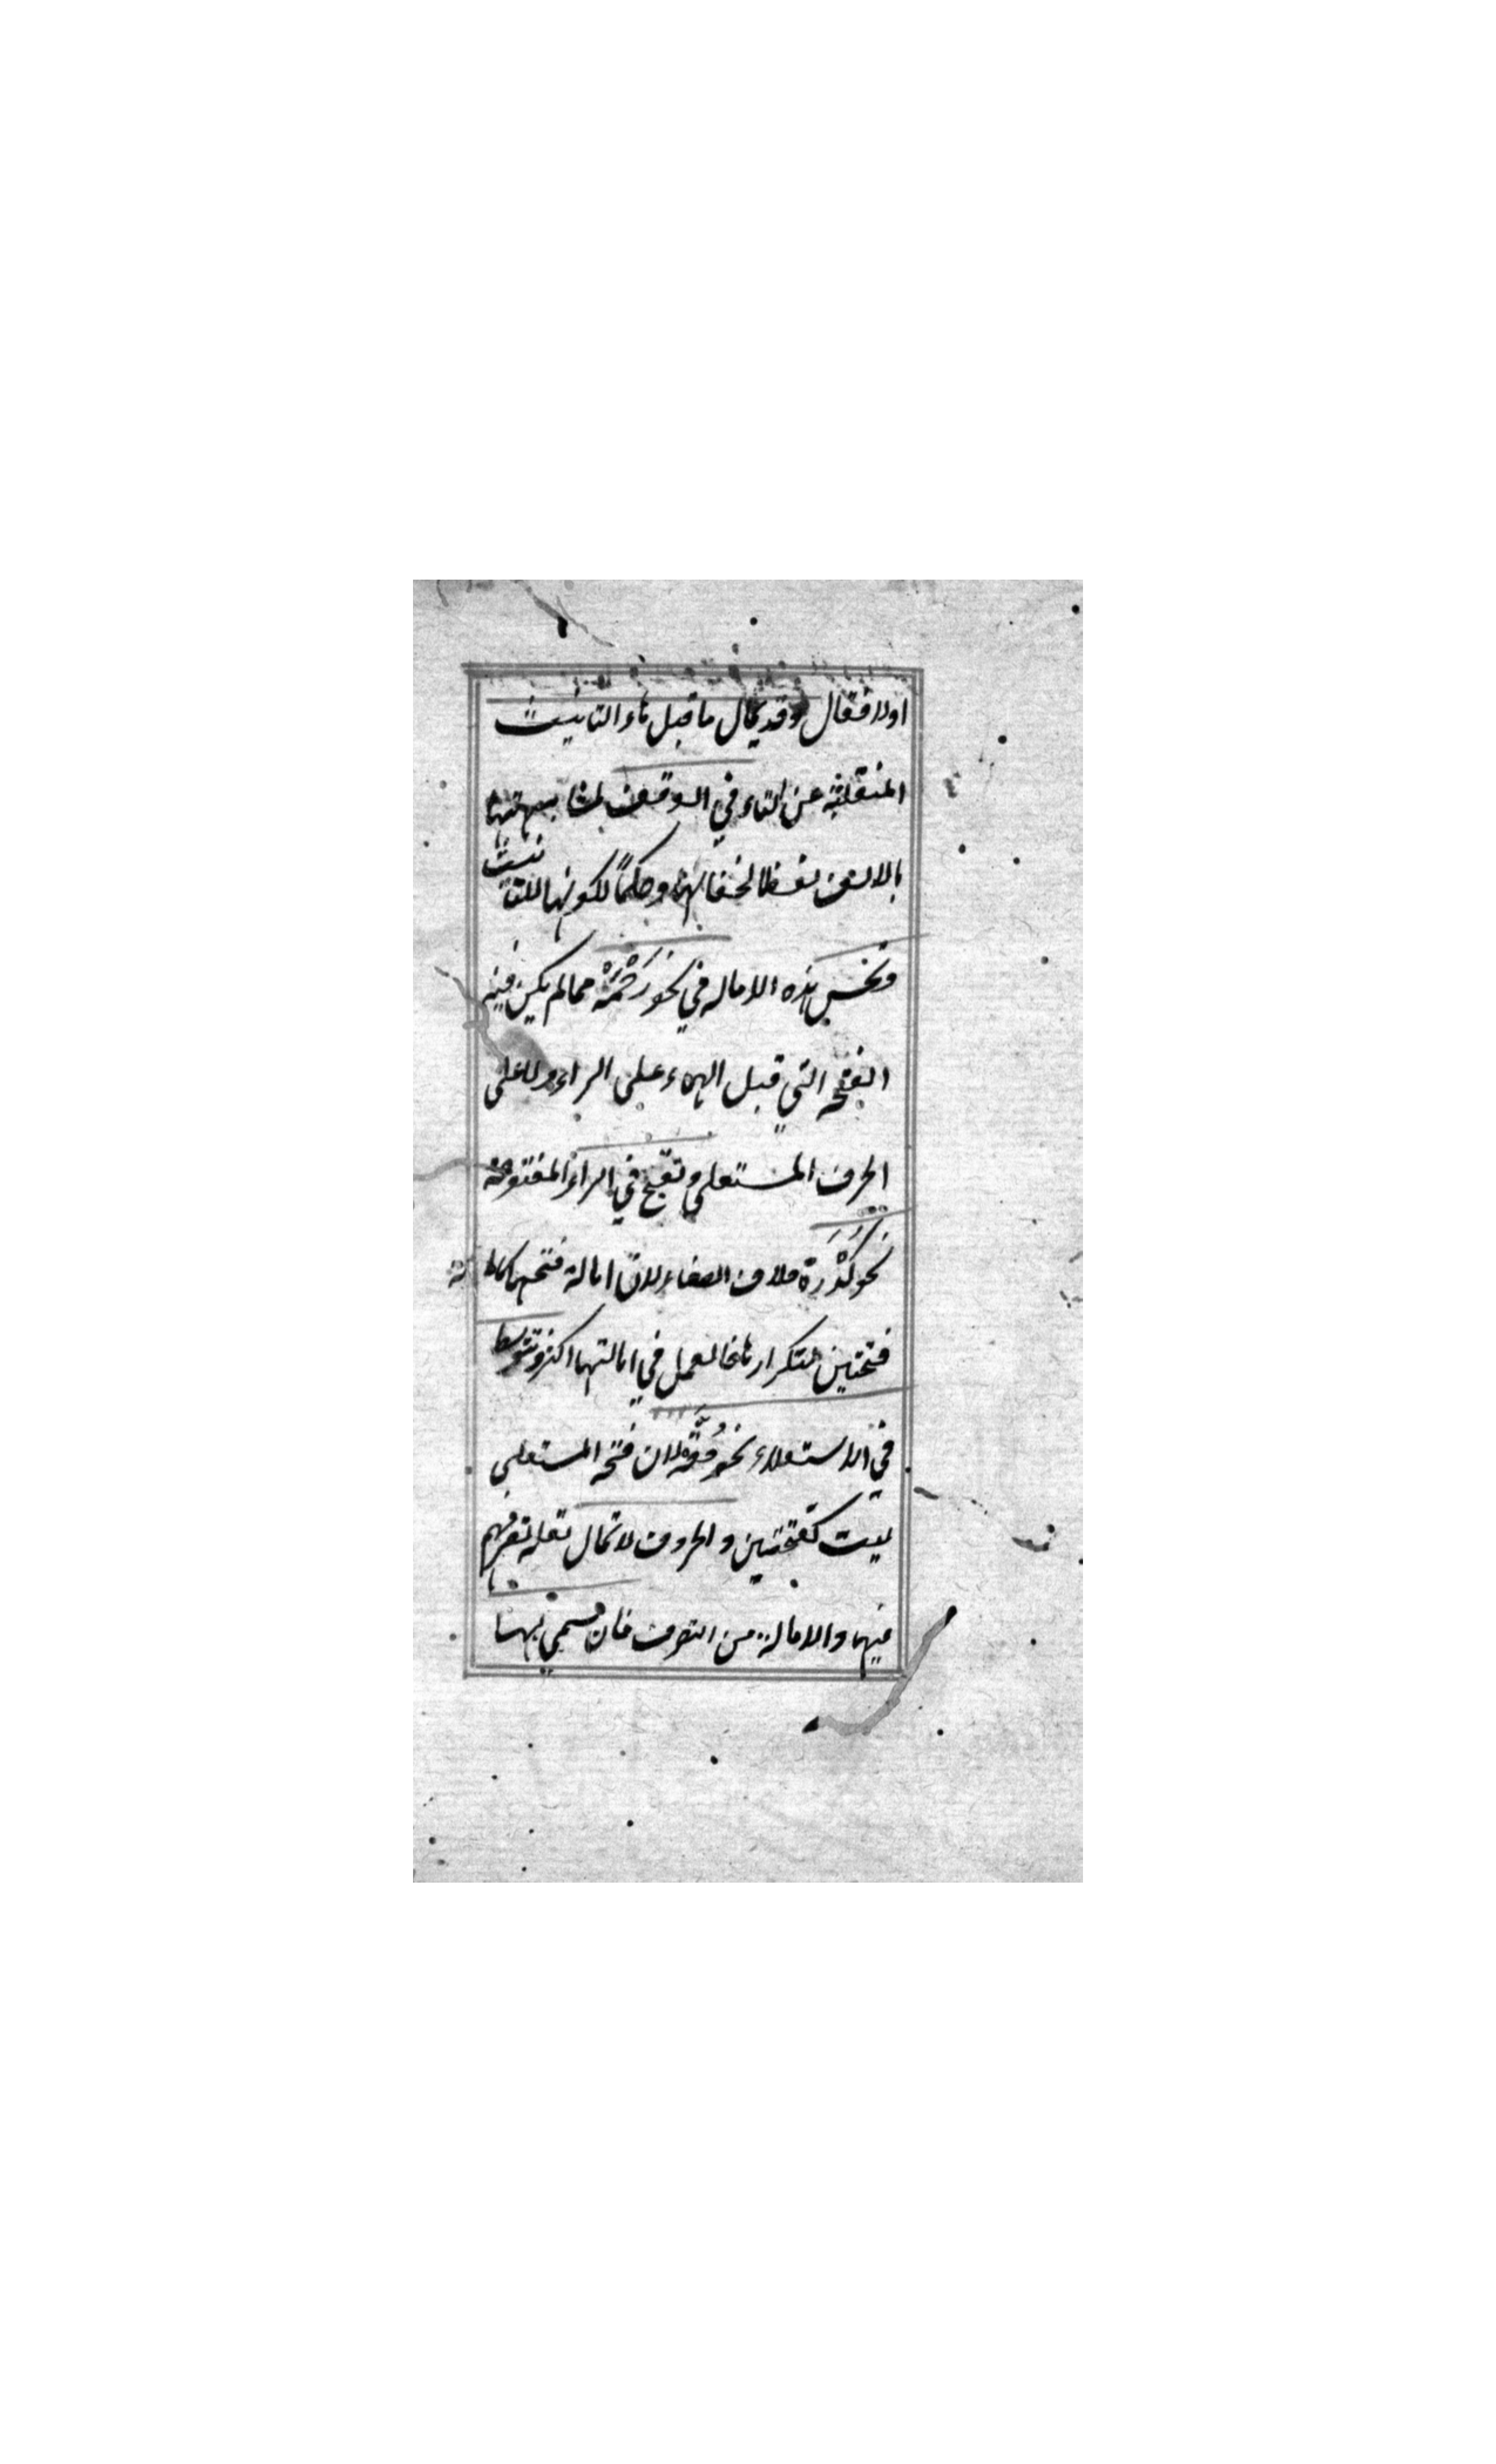 اولا فقال وقد يمال ما قبل هاء التانيث
المنقلبة عن التاء في الوقف لمشابهتها
بالالف لفظا لخفائها وحكمًا لكونها للتانيث
وتحسن هذه الاماله في نحو رَحْمَهْ مما لم يكن فيه
الفتحه التي قبل الهاء على الراء ولا على
الحرف المستعلي وتقبح في الراء المفتوحة
نحو كُدْرَة خلاف الصفاء لان امالة فتحها كامالة
فتحتين لتكرارها فالعمل في امالتها اكثر وتتوسط
في الاستعلاء نحو حُقَّه لان فتحه المستعلي
ليست كفتحتين والحروف لا تمال لقلة تصرفهم
فيها والامالة من التصرف فان سمي بها